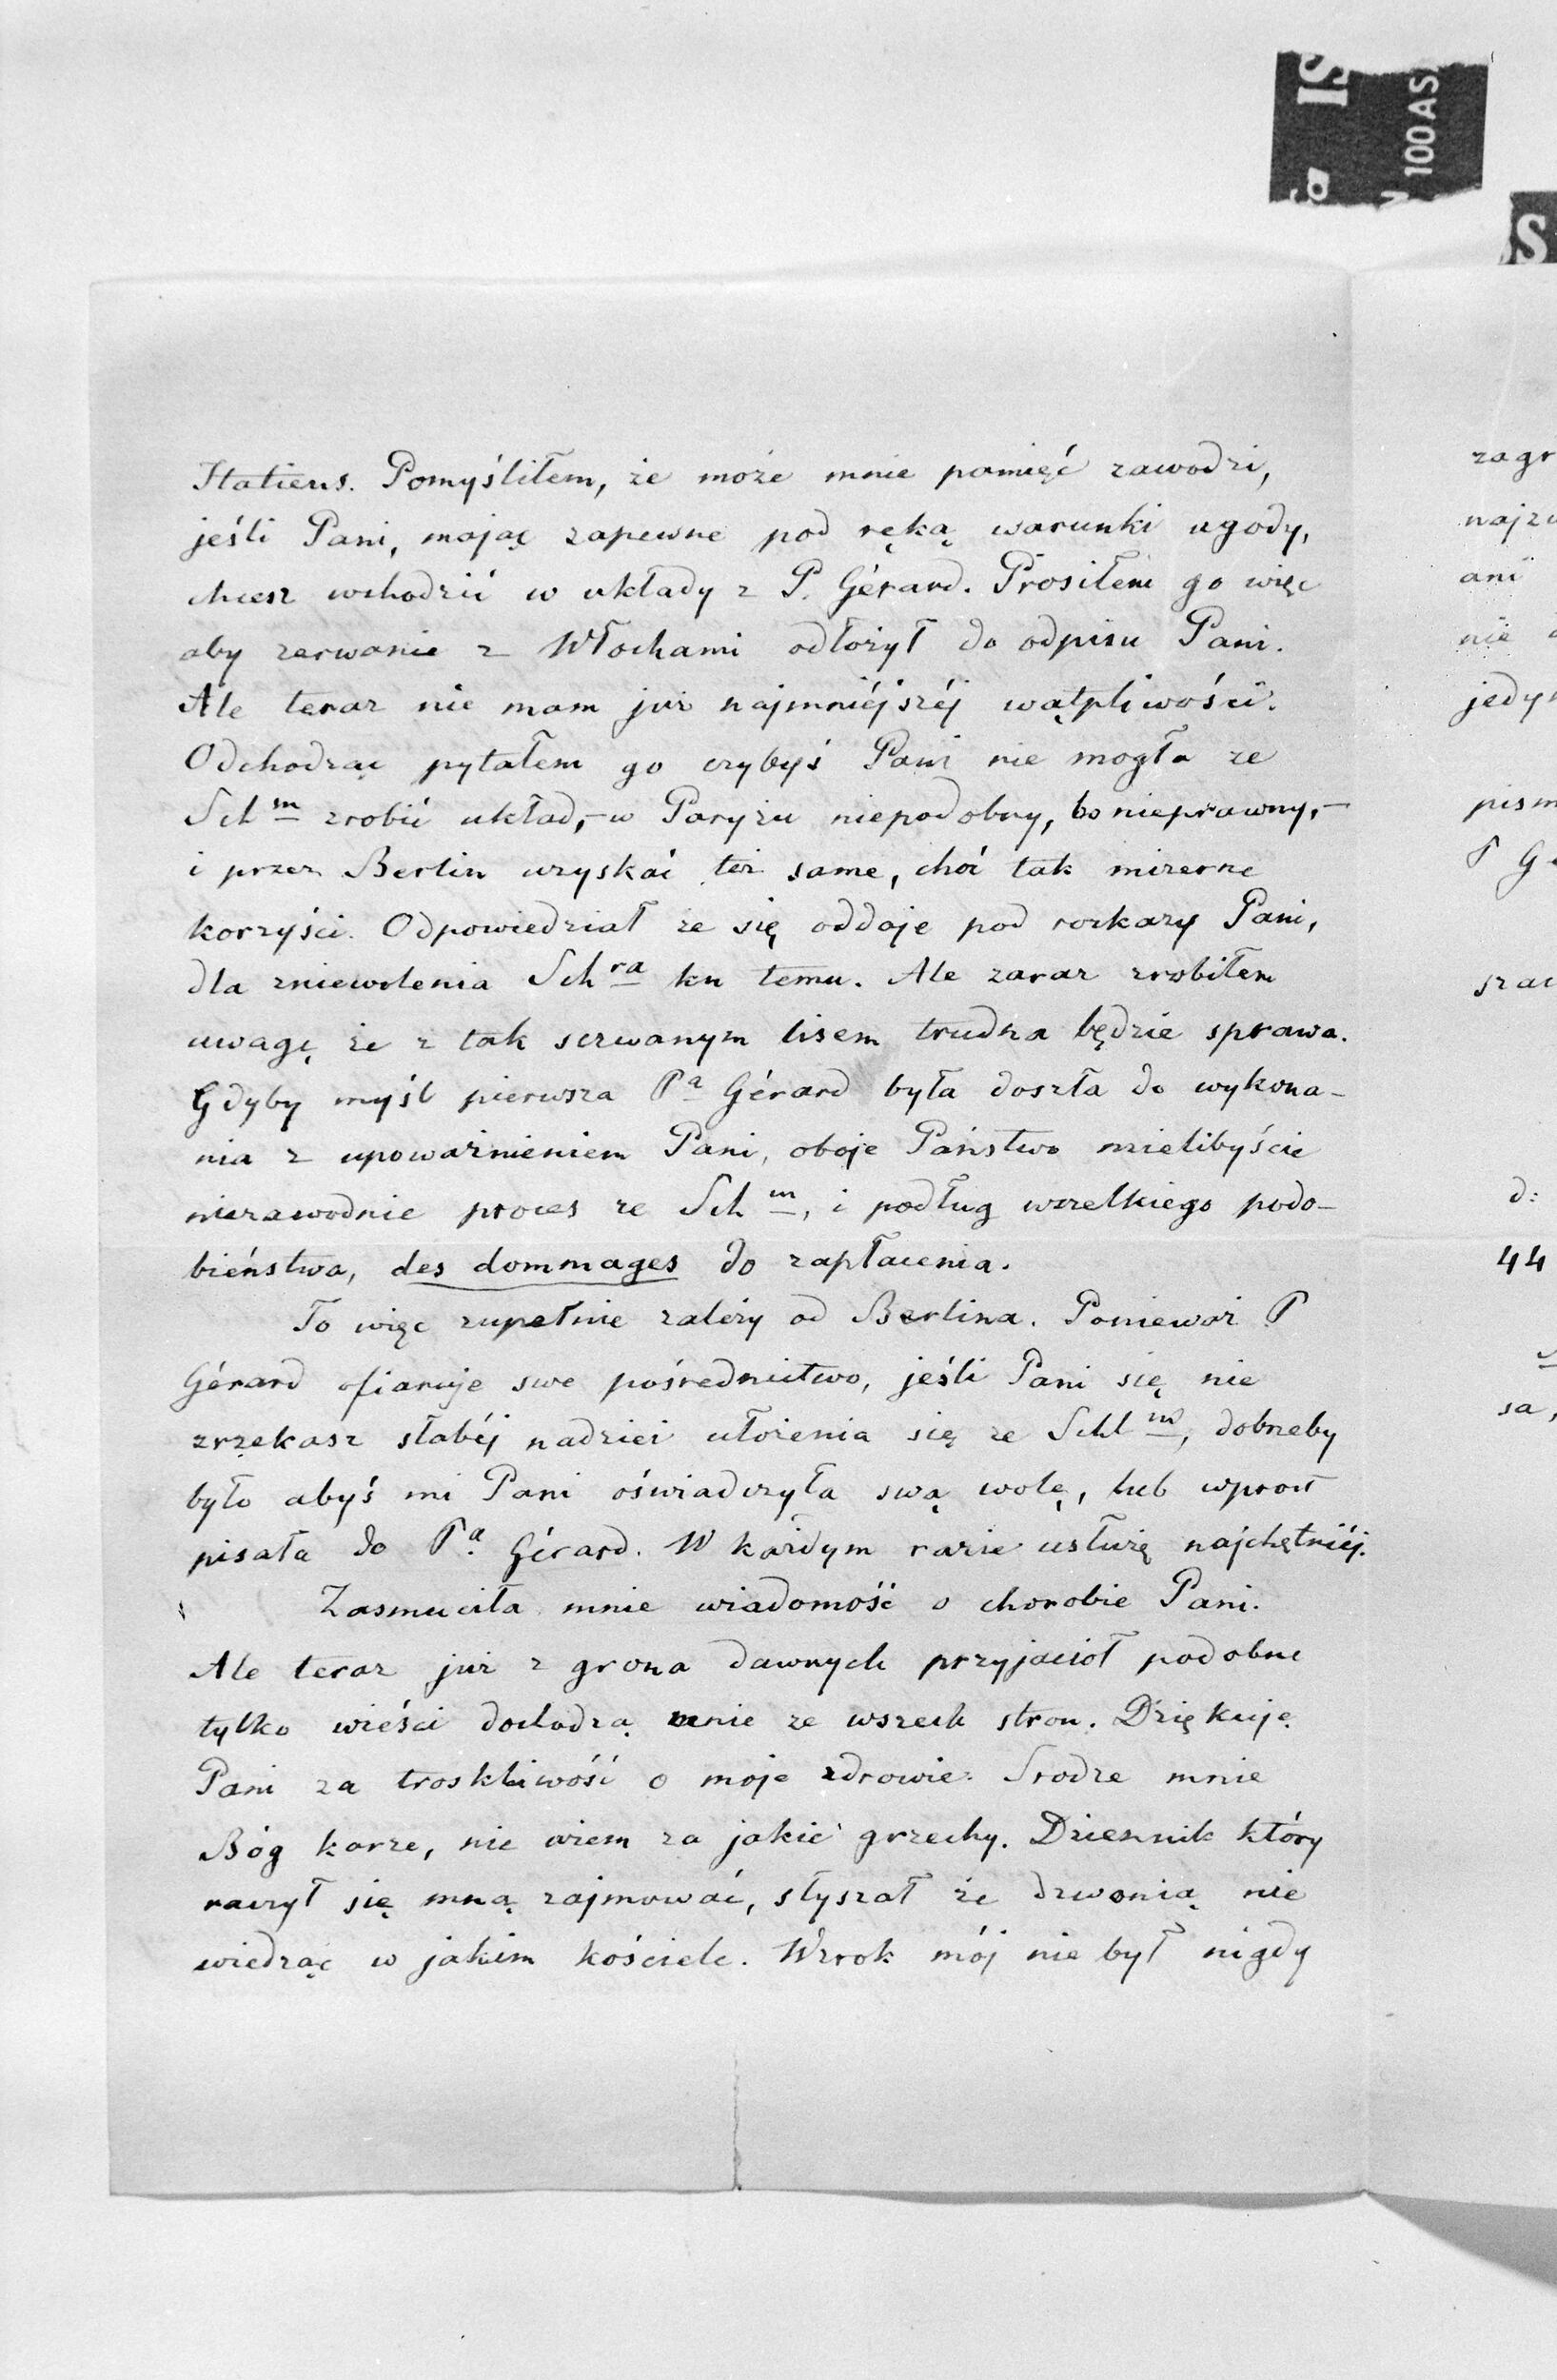 Italiens. Pomyśliłem, że może mnie pamięć zawodzi,
jeśli Pani, mając zapewne pod ręką warunki ugody,
chcesz wchodzić w układy z P. Gérard. Prosiłem go więc
aby zerwanie z Włochami odłożył do odpisu Pani.
Ale teraz nie mam już najmniéjszéj wątpliwości.
Odchodząc pytałem go czybyś Pani nie mogła ze
Sch^m zrobić układ,–w Paryżu niepodobny, bo nieprawny,–
i przez Berlin uzyskać też same, choć tak mizerne
korzyści. Odpowiedział że się oddaje pod rozkazy Pani,
dla zniewolenia Sch^ra ku temu. Ale zaraz zrobiłem
uwagę że z tak szczwanym lisem trudna będzie sprawa.
Gdyby myśl pierwsza P^a Gérard była doszła do wykona-
nia z upoważnieniem Pani, oboje Państwo mielibyście
niezawodnie proces ze Sch^m, i podług wszelkiego podo-
bieństwa, des dommages do zapłacenia.
To więc zupełnie zależy od Berlina. Ponieważ P
Gérard ofiaruje swe pośrednictwo, jeśli Pani się nie
zrzekasz słabéj nadziei ułożenia się ze Schl^m, dobrzeby
było abyś mi Pani oświadczyła swą wolę, lub wprost
pisała do P^a Gérard. W każdym razie usłużę najchętniéj.
Zasmuciła mnie wiadomość o chorobie Pani.
Ale teraz już z grona dawnych przyjaciół podobne
tylko wieści dochodzą mnie ze wszech stron. Dziękuję
Pani za troskliwość o moje zdrowie. Srodze mnie
Bóg karze, nie wiem za jakie grzechy. Dziennik który
raczył się mną zajmować, słyszał że dzwonią nie
wiedząc w jakim kościele. Wzrok mój nie był nigdy
zagr
najzu
ani
nie
jedyn
pism
P Gé
szac
d:
44
sa,
IS
100 AS
S